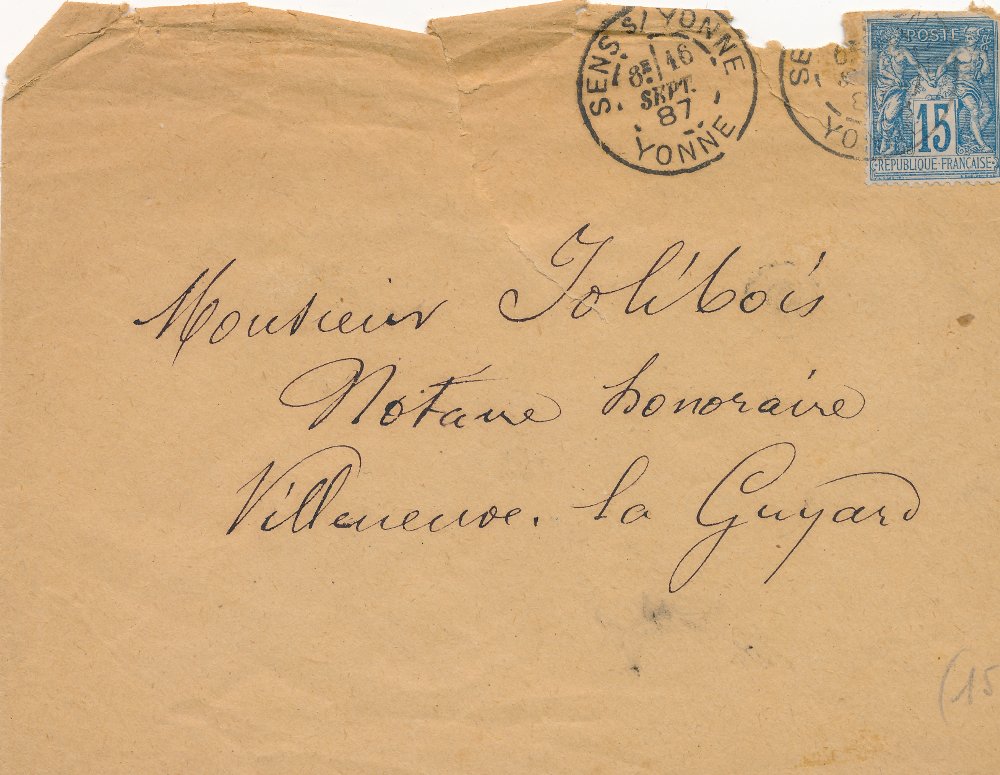 SENS S/ YONNE
8E 16
SEPT.
87
YONNE
SE
YO
POSTE
15
RÉPUBLIQUE FRANÇAISE
Monsieur Jolibois
Notaire honoraire
Villeneuve. la Guyard
(15